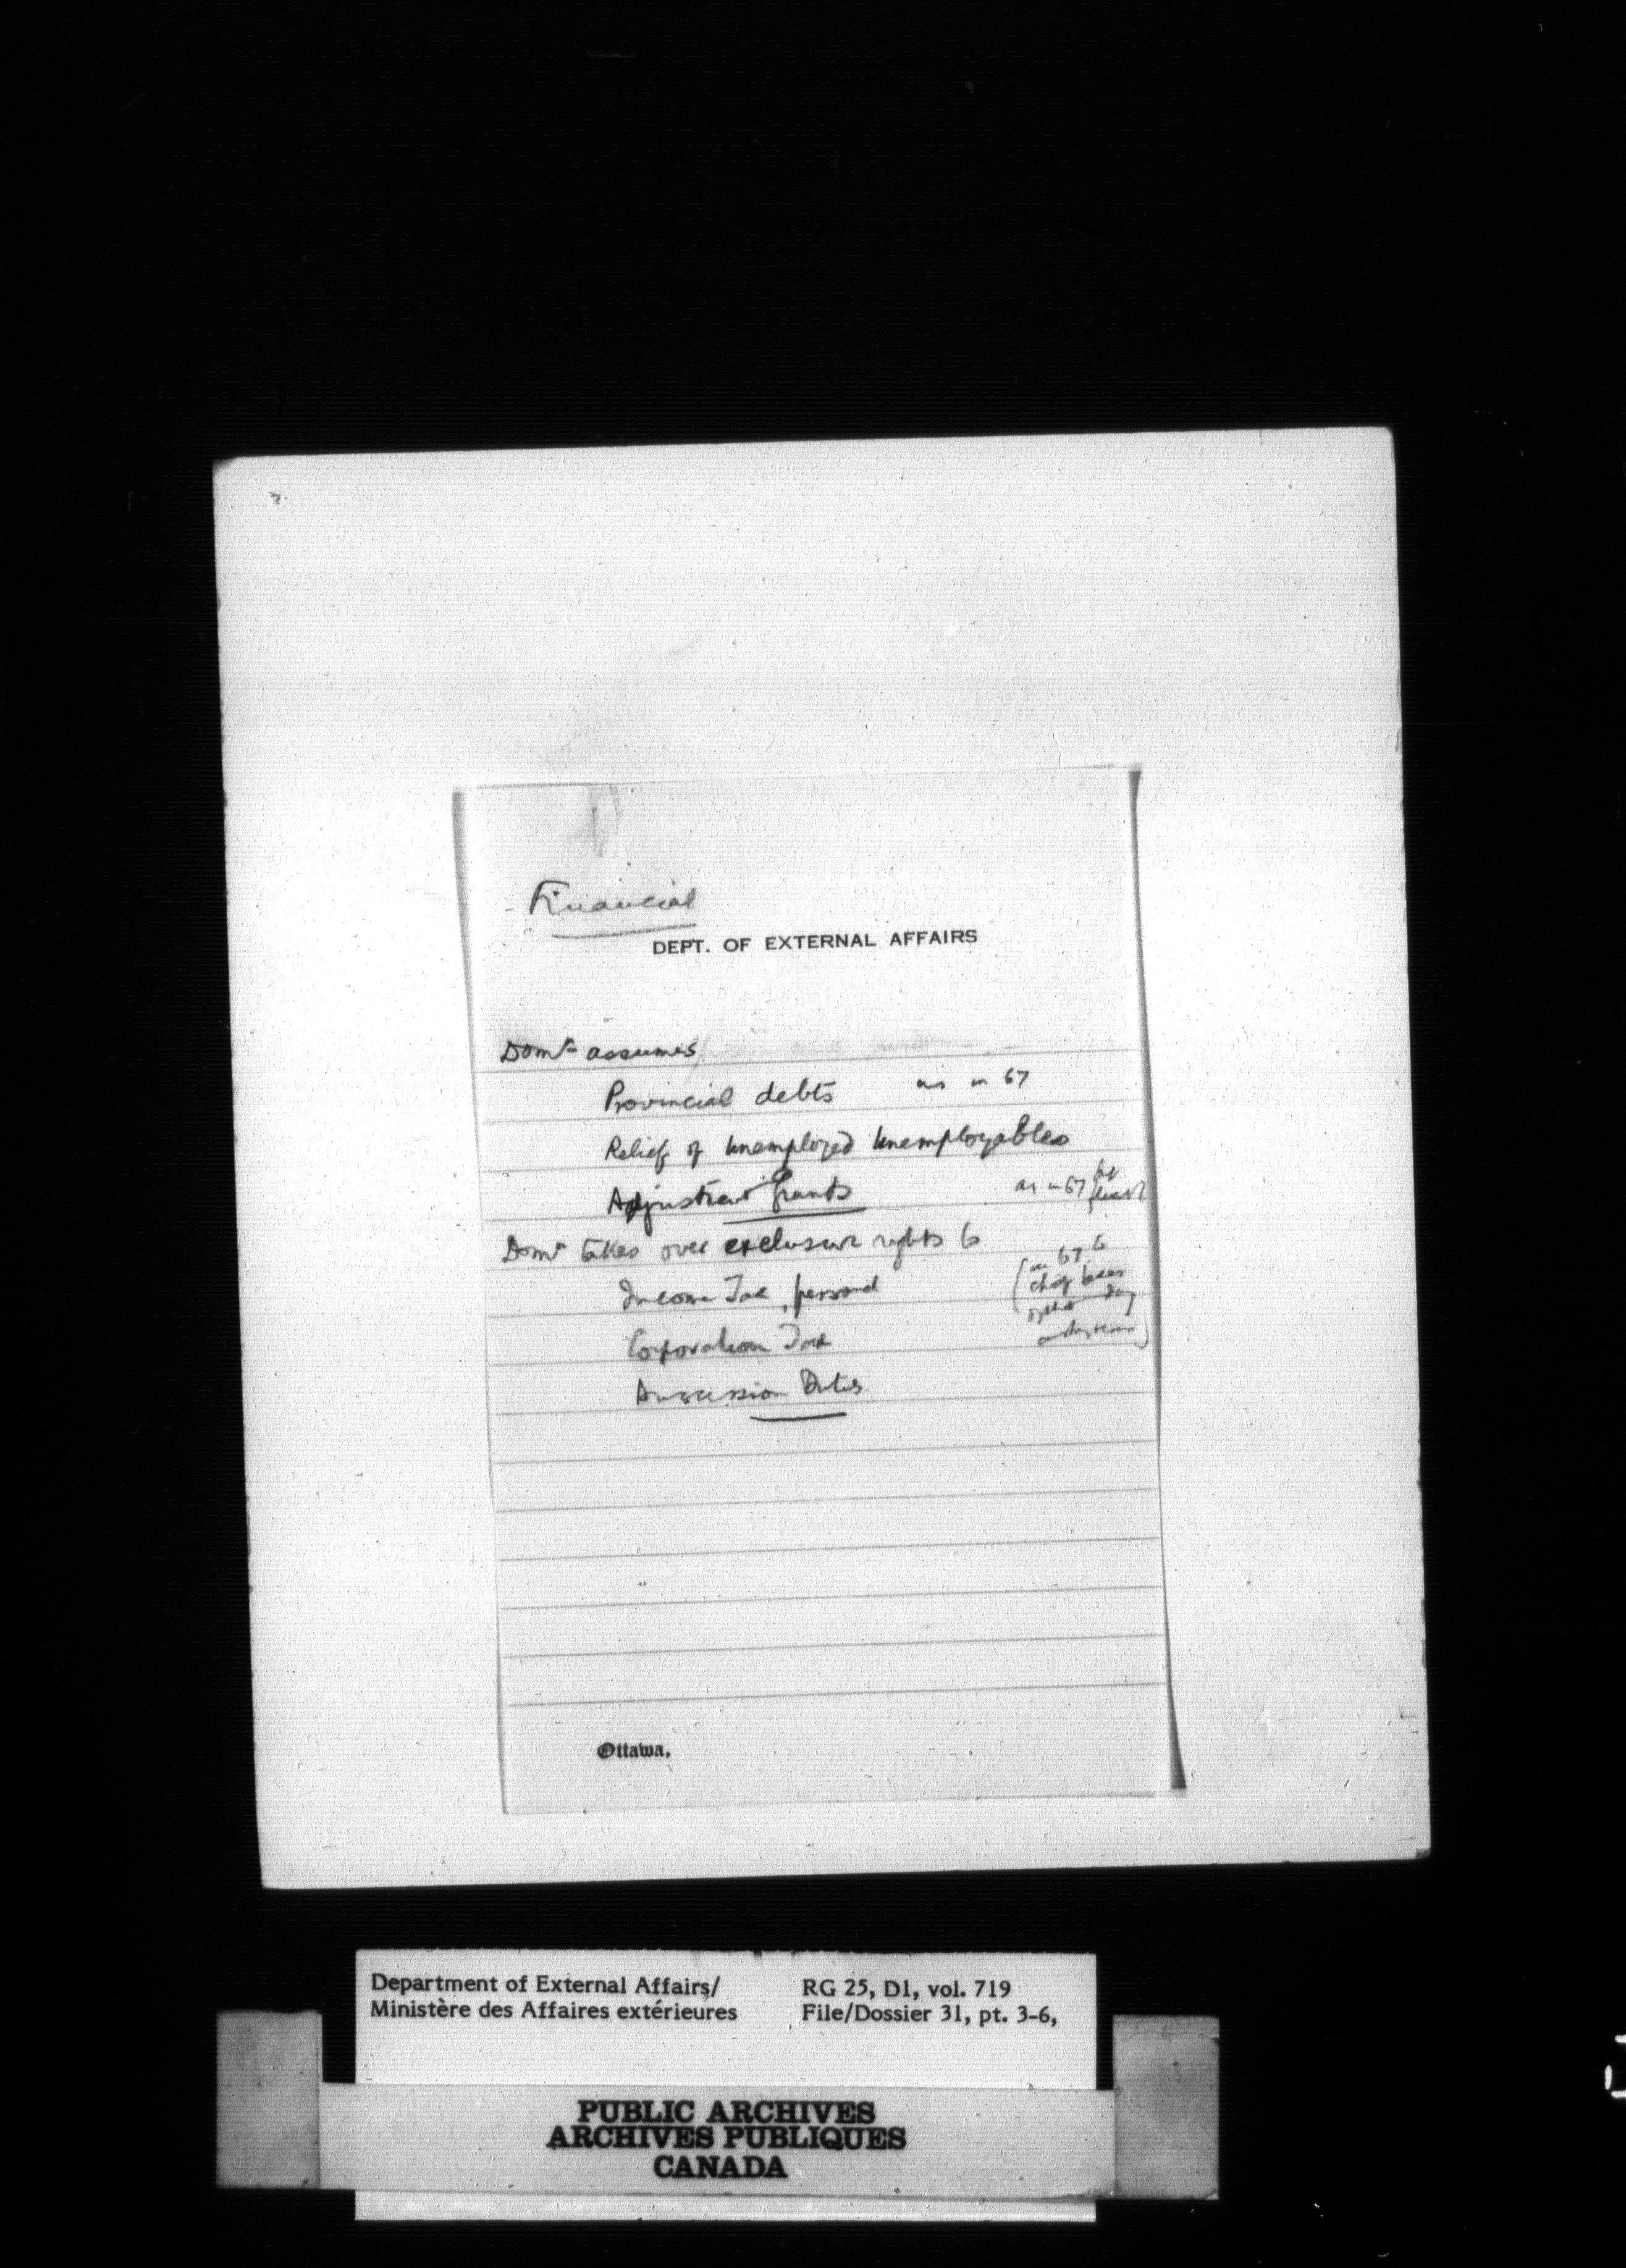 - Financial
DEPT. OF EXTERNAL AFFAIRS
Domn assumes
Provincial debts as in 67
Relief of unemployed unemployables
Adjustment Grants as in 67
Domn takes over exclusive rights to
Income Tax, personal
as 67 to
chief taxes
Corporation Tax
Succession Duties
Ottawa,
Department of External Affairs/
Ministère des Affaires extérieures
RG 25, D1, vol. 719
File/Dossier 31, pt. 3-6,
PUBLIC ARCHIVES
ARCHIVES PUBLIQUES
CANADA